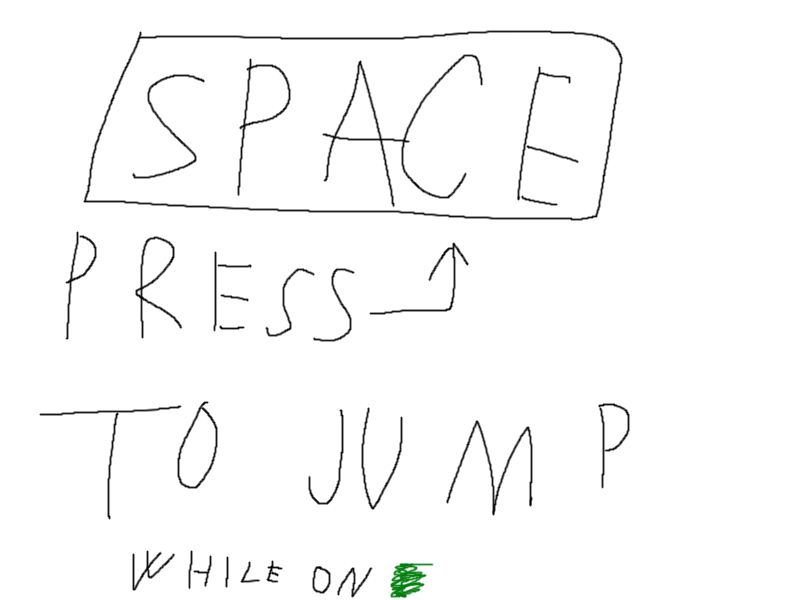 SPACE
PRESS
TO JUMP
WHILE ON